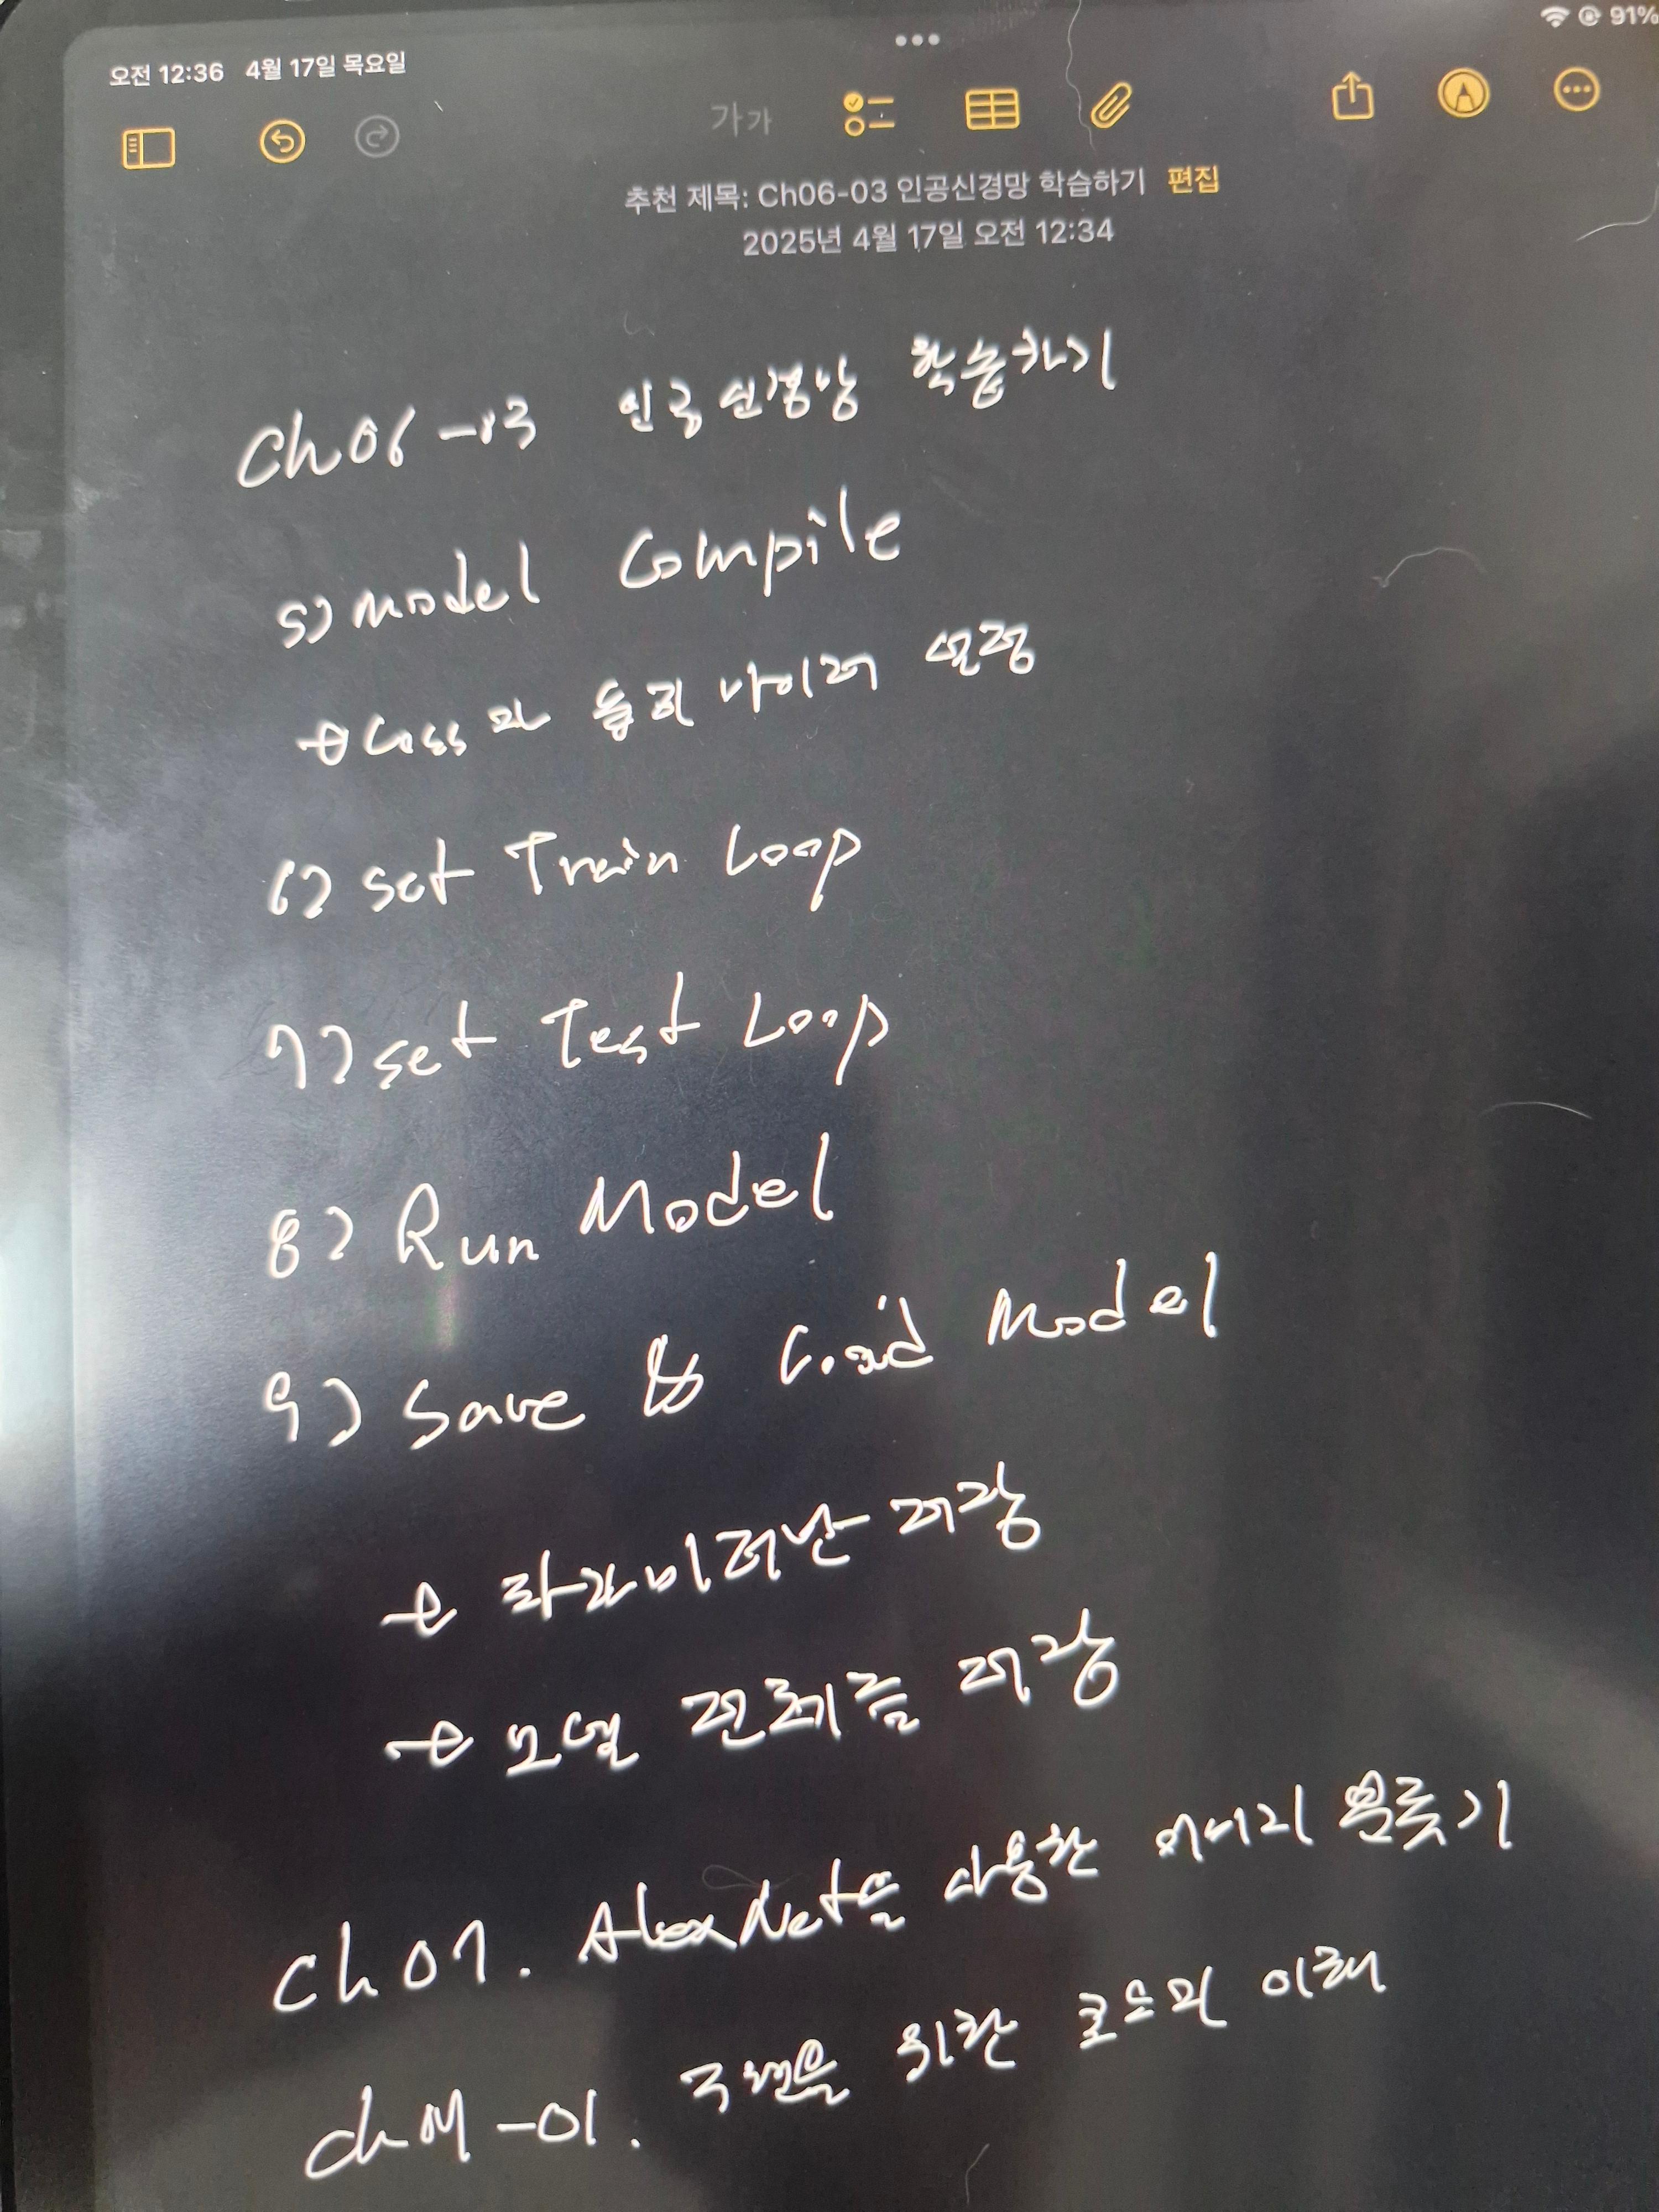 오전 12:36 4월 17일 목요일
91%
가가
추천 제목: Ch06-03 인공신경망 학습하기 편집
2025년 4월 17일 오전 12:34
Ch06-03 인공신경망 학습하기
5) Model Compile
→ Loss와 옵티마이저 설정
6) Set Train Loop
7) Set Test Loop
8) Run Model
9) Save & Load Model
→ 파라미터만 저장
→ 모델 전체를 저장
Ch07. AlexNet을 사용한 이미지 분류기
Ch07-01. 구현을 위한 이해